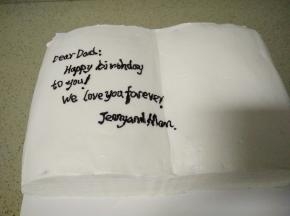 Dear Dad:
Happy birthday
to you!
We love you forever!
Jenny and Mum.